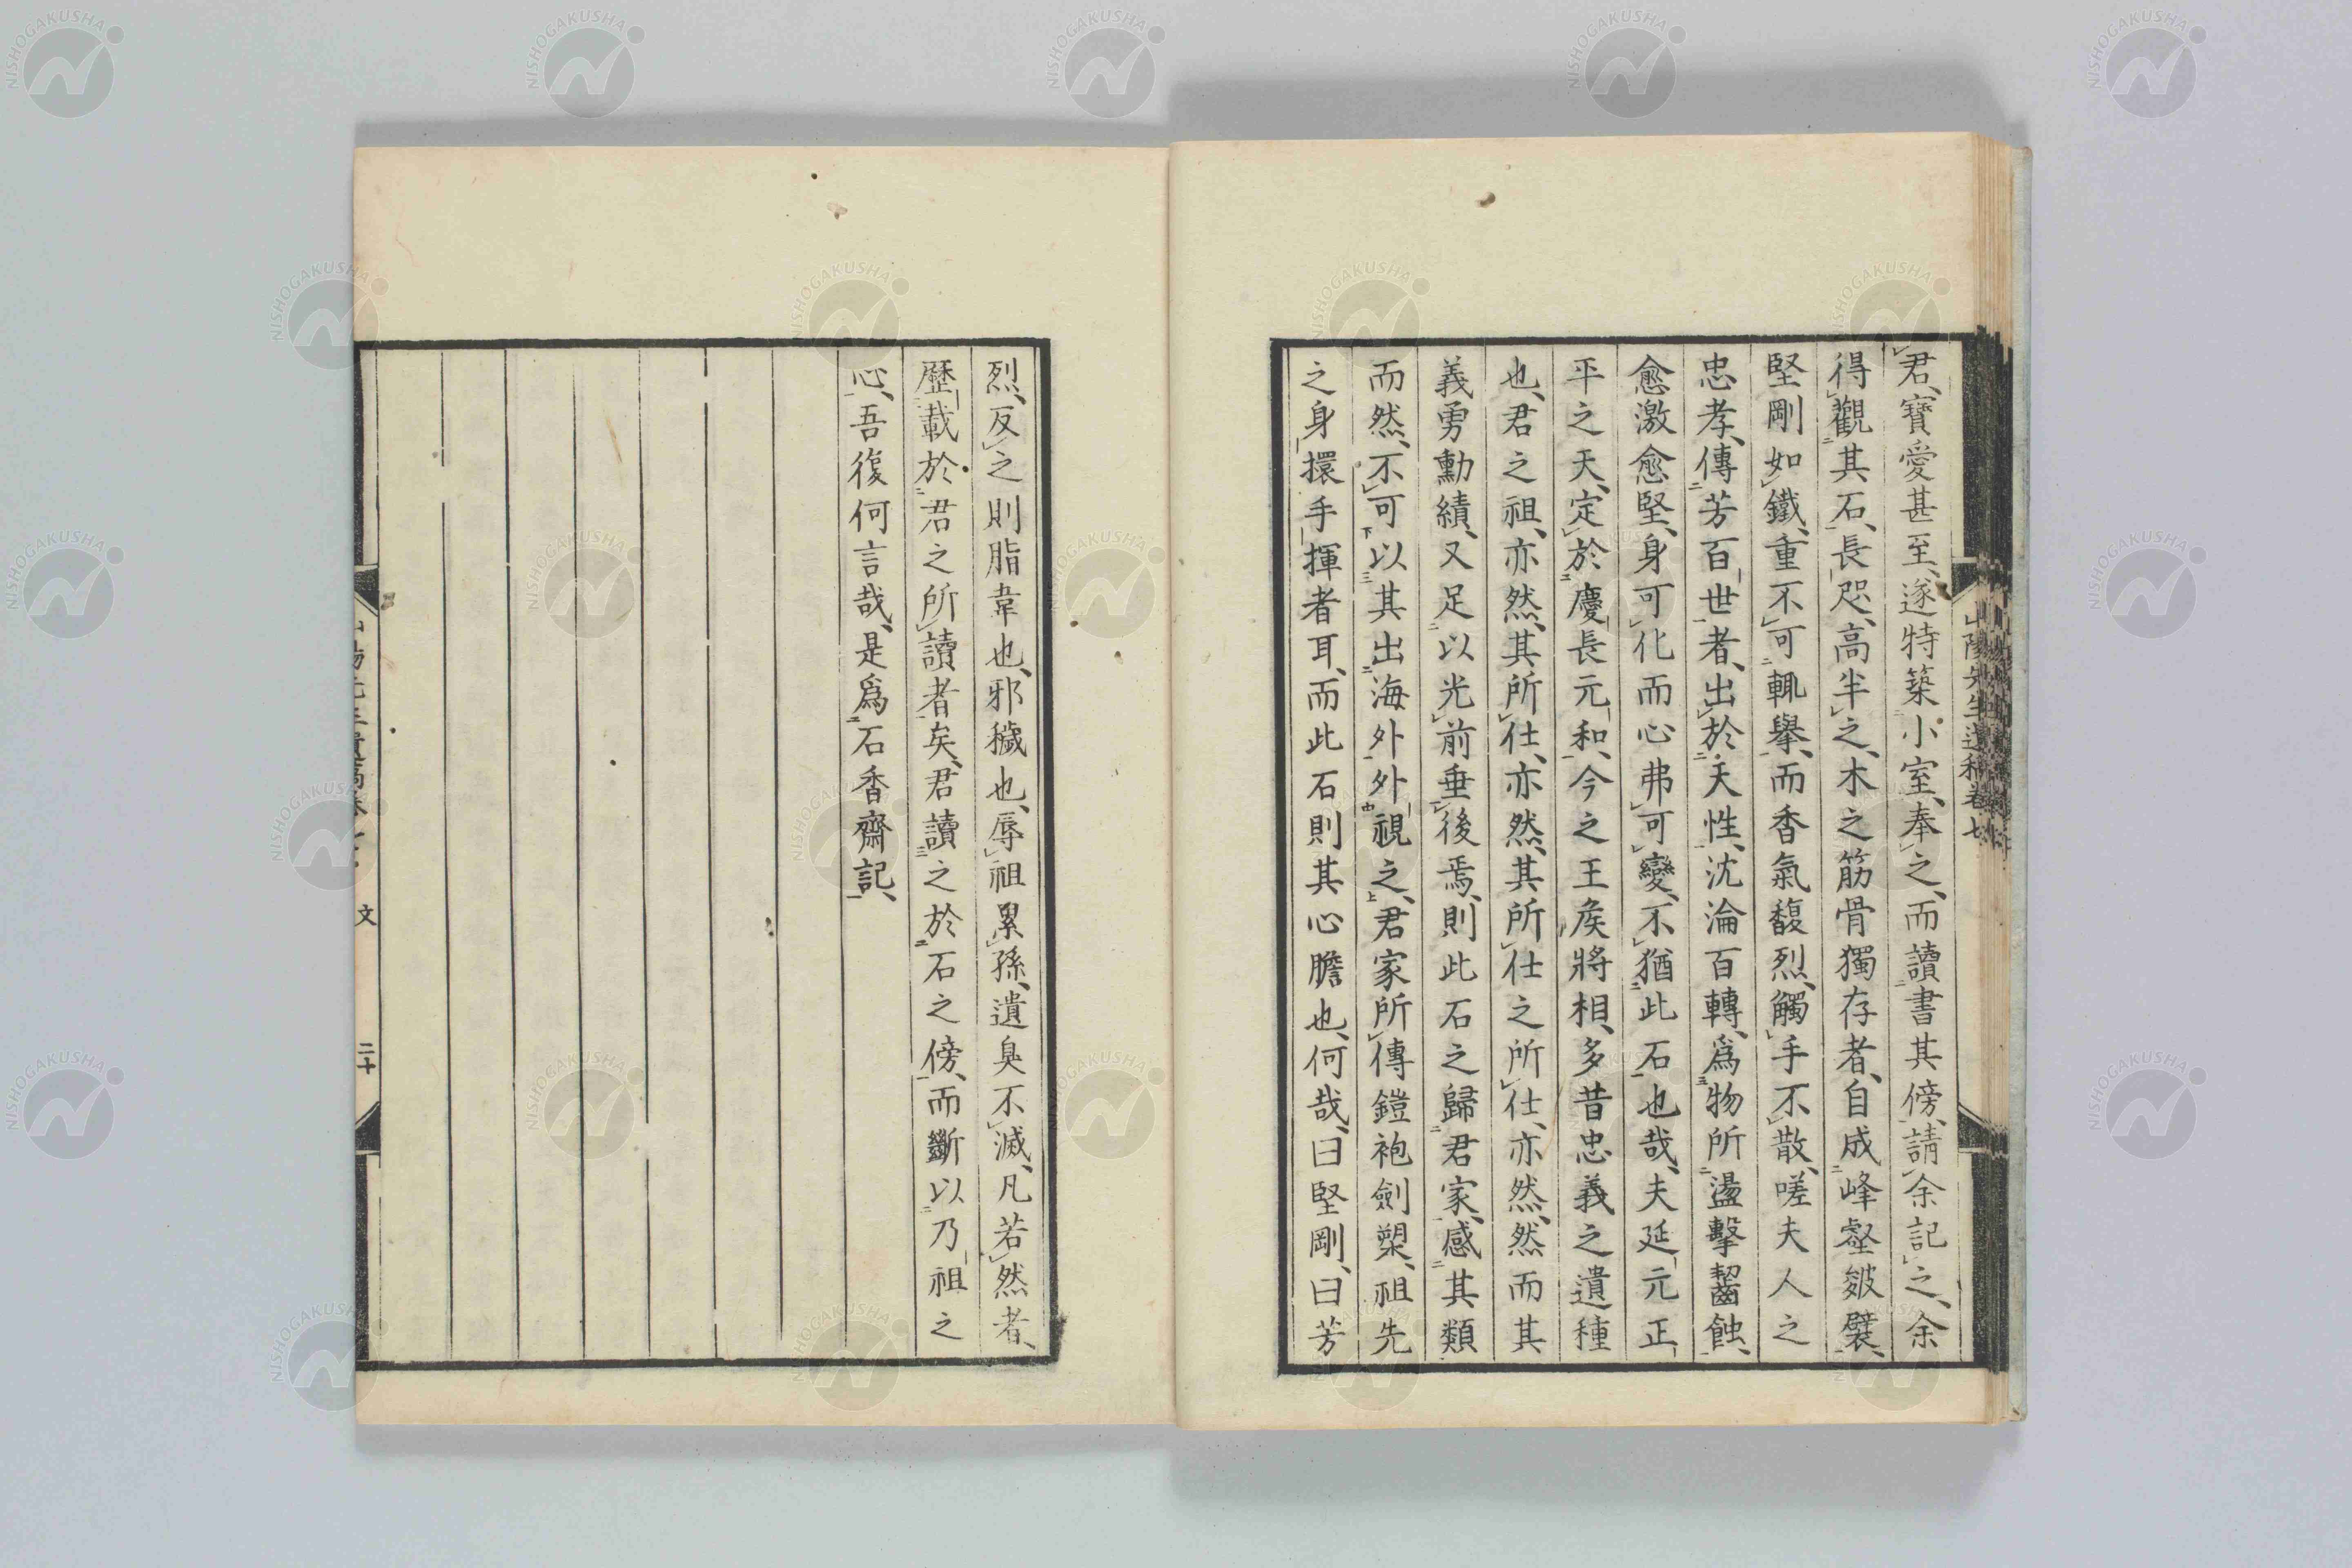 君、寶愛甚至、遂特築小室、奉之、而讀書其傍、請余記之、余
得觀其石、長咫、高半之、木之筋骨獨存者、自成峰壑皴襞、
堅剛如鐵、重不可輒擧、而香氣馥烈、觸手不散、嗟夫人之
忠孝、傳芳百世者、出於天性、沈淪百轉、爲物所盪擊齧蝕、
愈激愈堅、身可化而心弗可變、不猶此石也哉、夫延元正
平之天、定於慶長元和、今之王侯將相、多昔忠義之遺種
也、君之祖、亦然、其所仕、亦然、其所仕之所仕、亦然、然而其
義勇勳績、又足以光前垂後焉、則此石之歸君家、感其類
而然、不可以其出海外外視之、君家所傳鎧袍劍槊、祖先
之身擐手揮者耳、而此石則其心膽也、何哉、曰堅剛、曰芳
烈、反之則脂韋也、邪穢也、辱祖累孫、遺臭不滅、凡若然者、
歷載於君之所讀者矣、君讀之於石之傍、而斷以乃祖之
心、吾復何言哉、是爲石香齋記、
山陽先生遺稿卷七
文
二十
NISHOGAKUSHA